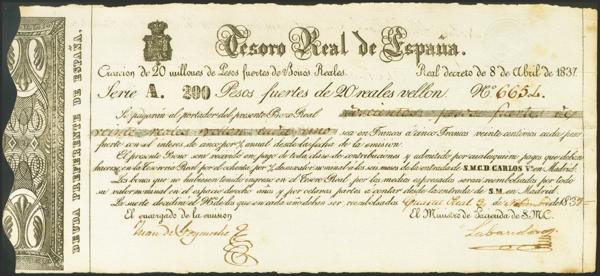 DEUDA PREFERENTE DE ESPAÑA.
Tesoro Real de España.
Creacion de 20 millones de Pesos fuertes de Bonos Reales. Real decreto de 8 de Abril de 1837.
Serie A. 200 Pesos fuertes de 20 reales vellon N.º 6654
Se pagarán al portador del presente Bono Real doscientos pesos fuertes de
veinte reales vellon cada uno sea en Francos á cinco Francos veinte centimos cada peso
fuerte con el interes de cinco por % annual desde la fecha de la emision.
El presente Bono será recibido en pago de toda clase de contribuciones y admitido por cualesquiera pagos que deban
hacerse en la Tesoreria Real por el ciento por % de su valor nominal á los seis meses de la entrada de S.M.C.D. CARLOS V.º en Madrid.
Los bonos que no hubiesen tenido ingreso en el Tesoro Real por los medios espresados seran reembolsados por todo
su valor nominal en el espacio de ocho años y por octavas partes á contar desde la entrada de S.M. en Madrid.
La suerte decidirá el N.º de los que en cada año deben ser reembolsados. Cuartel Real 2 de de 1837
El encargado de la emision El Ministro de Hacienda de S.M.C.
Juan de Labandero